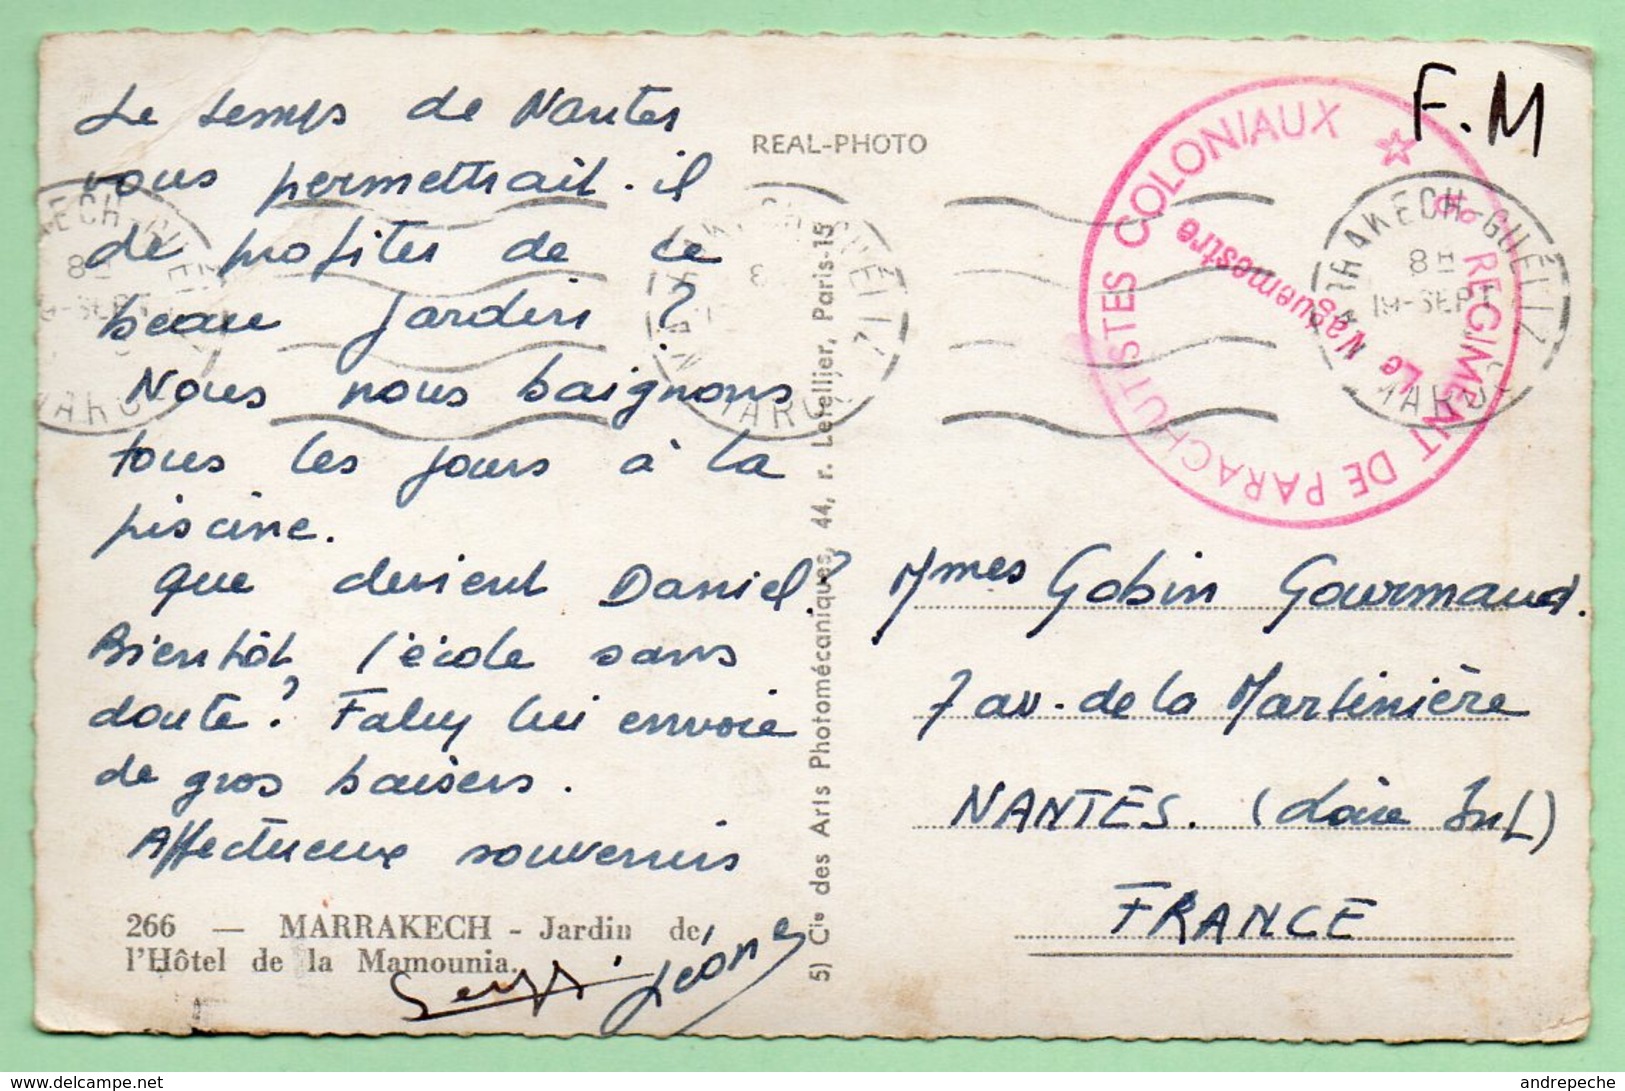 Le temps de Nantes
vous permettrait-il
de profiter de ce
beau jardin ?
Nous nous baignons
tous les jours à la
piscine.
Que devient Daniel ?
Bientôt l'école sans
doute ? Faby lui envoie
de gros baisers.
Affectueux souvenirs
266 — MARRAKECH - Jardin de
l'Hôtel de la Mamounia.
Léone
REAL-PHOTO
5) Cie des Arts Photomécaniques, 44, r. Letellier, Paris-15
F.M
REGIMENT DE PARACHUTISTES COLONIAUX
Le Vaguemestre
MARRAKECH-GUÉLIZ
8H
19-SEPT
MAROC
Mmes Gobin Gourmaud.
7 av. de la Martinière
NANTES. (Loire Inf)
FRANCE
www.delcampe.net
andrepeche